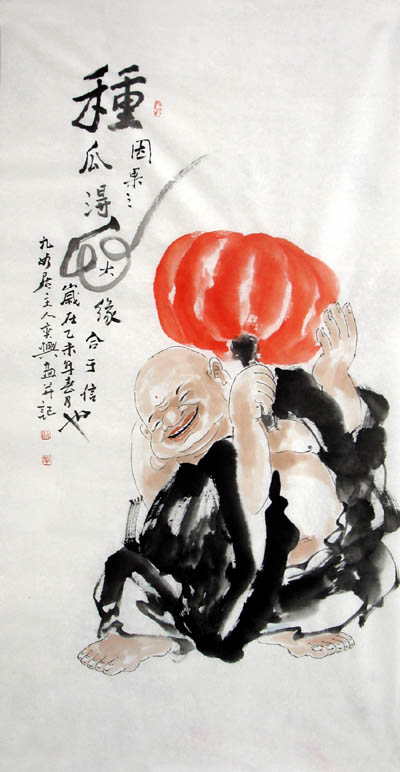 種瓜得瓜
因果之大緣合于信也
歲在乙未年春月
九如居主人奕興畫并記